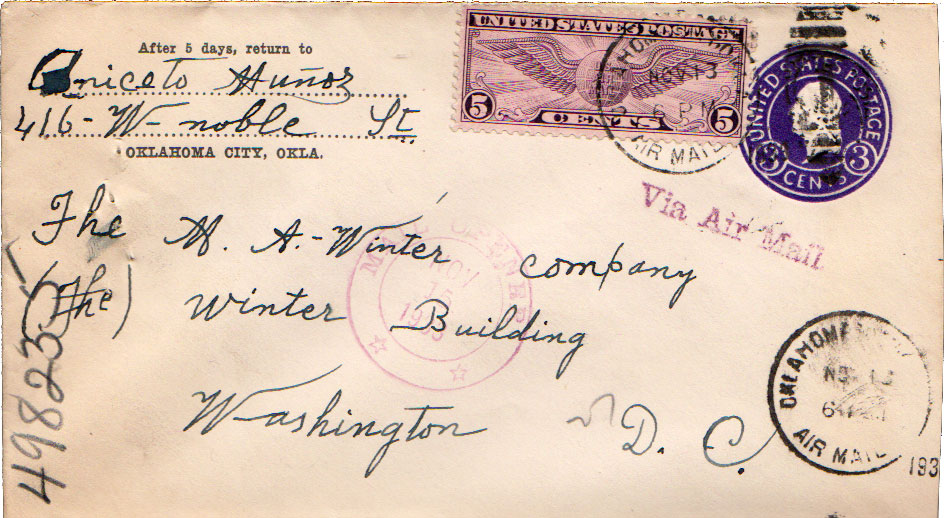 After 5 days, return to
Aniceto Muñoz
416-W-noble St.
OKLAHOMA CITY, OKLA.
UNITED STATES POSTAGE
5 CENTS 5
UNITED STATES POSTAGE
3 CENTS 3
NOV 13
6 PM
AIR MAIL
Via Air Mail
The M. A.-Winter company
(The) Winter Building
Washington D. C.
NOV
15
OKLAHOMA
NOV 13
AIR MAIL
193
498235